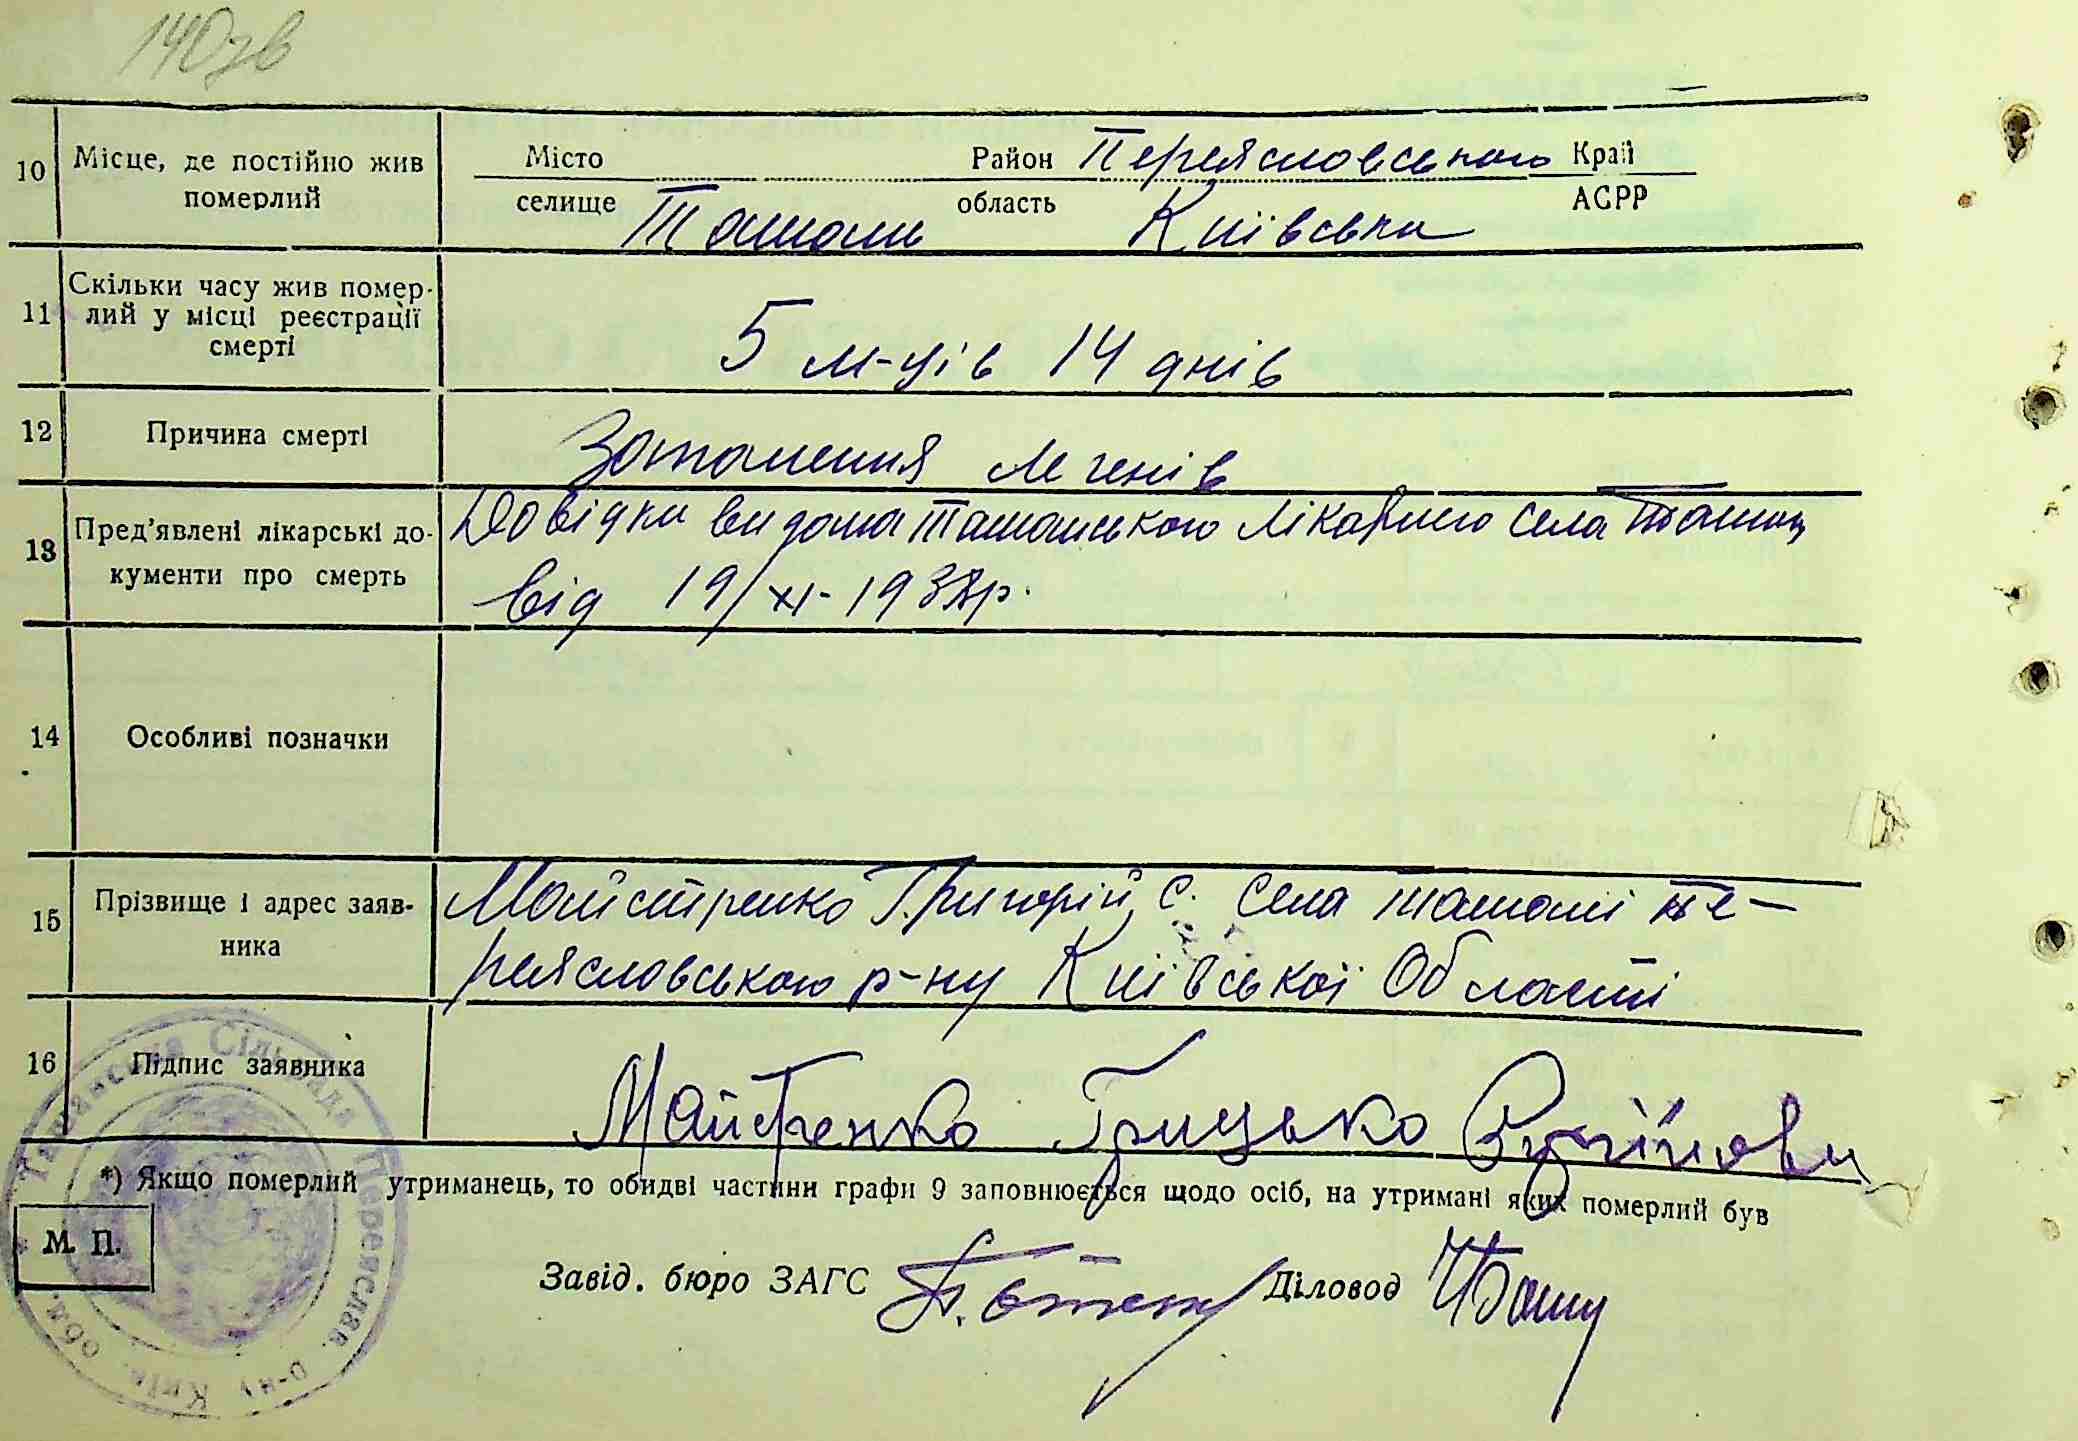 140зв
10 Місце, де постійно жив Місто Район Переясловського Край
померлий селище Ташань область Київська АСРР
11 Скільки часу жив помер-
лий у місці реєстрації 5 м-ців 14 днів
смерті
12 Причина смерті Запалення легенів
13 Пред'явлені лікарські до- Довідка видана Ташанською Лікарнею села Ташань
кументи про смерть від 19/XI-1938р.
14 Особливі позначки
15 Прізвище і адрес заяв- Майстренко Григорій, С. села Ташані Пе-
ника реясловського р-ну Київської Області
16 Підпис заявника Майстренко Грицько
*) Якщо померлий утриманець, то обидві частини графи 9 заповнюється щодо осіб, на утримані яких померлий був
М. П.
Завід. бюро ЗАГС Діловод
Ташанська Сільрада Переяслав. р-ну Київ. обл.